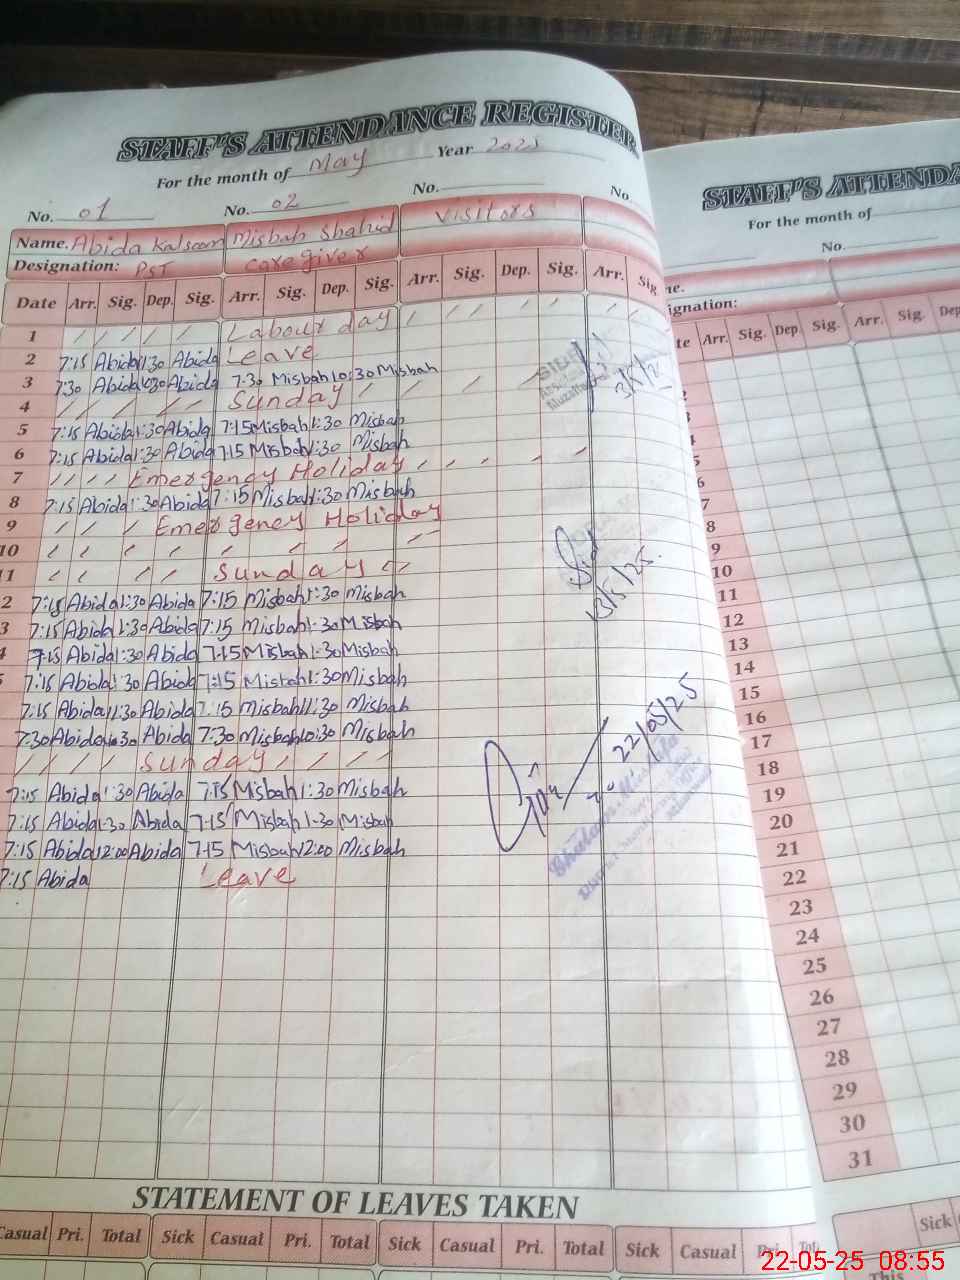 STAFF'S ATTENDANCE REGISTER
For the month of May Year 2025
No. 01 No. 02 No. No.
Name. Abida Kalsoom Misbah Shahid Visitors
Designation: PST Caregiver
Date Arr. Sig. Dep. Sig. Arr. Sig. Dep. Sig. Arr. Sig. Dep. Sig. Arr. Sig.
1 Labour day
2 7:15 Abida 1:30 Abida Leave
3 7:30 Abida 10:30 Abida 7:30 Misbah 10:30 Misbah
4 Sunday
5 7:15 Abida 1:30 Abida 7:15 Misbah 1:30 Misbah
6 7:15 Abida 1:30 Abida 7:15 Misbah 1:30 Misbah
7 Emergency Holiday
8 7:15 Abida 1:30 Abida 7:15 Misbah 1:30 Misbah
9 Emergency Holiday
10
11 Sunday
2 7:15 Abida 1:30 Abida 7:15 Misbah 1:30 Misbah
3 7:15 Abida 1:30 Abida 7:15 Misbah 1:30 Misbah
4 7:15 Abida 1:30 Abida 7:15 Misbah 1:30 Misbah
7:15 Abida 1:30 Abida 7:15 Misbah 1:30 Misbah
7:15 Abida 11:30 Abida 7:15 Misbah 11:30 Misbah
7:30 Abida 10:30 Abida 7:30 Misbah 10:30 Misbah
Sunday
7:15 Abida 1:30 Abida 7:15 Misbah 1:30 Misbah
7:15 Abida 1:30 Abida 7:15 Misbah 1:30 Misbah
7:15 Abida 12:00 Abida 7:15 Misbah 12:00 Misbah
7:15 Abida Leave
13/5/25
22/05/25
STATEMENT OF LEAVES TAKEN
Casual Pri. Total Sick Casual Pri. Total Sick Casual Pri. Total Sick Casual Pri.
STAFF'S ATTENDA
For the month of
No.
me.
ignation:
te Arr. Sig. Dep. Sig. Arr. Sig. Dep
6
7
8
9
10
11
12
13
14
15
16
17
18
19
20
21
22
23
24
25
26
27
28
29
30
31
Sick
This
22-05-25 08:55